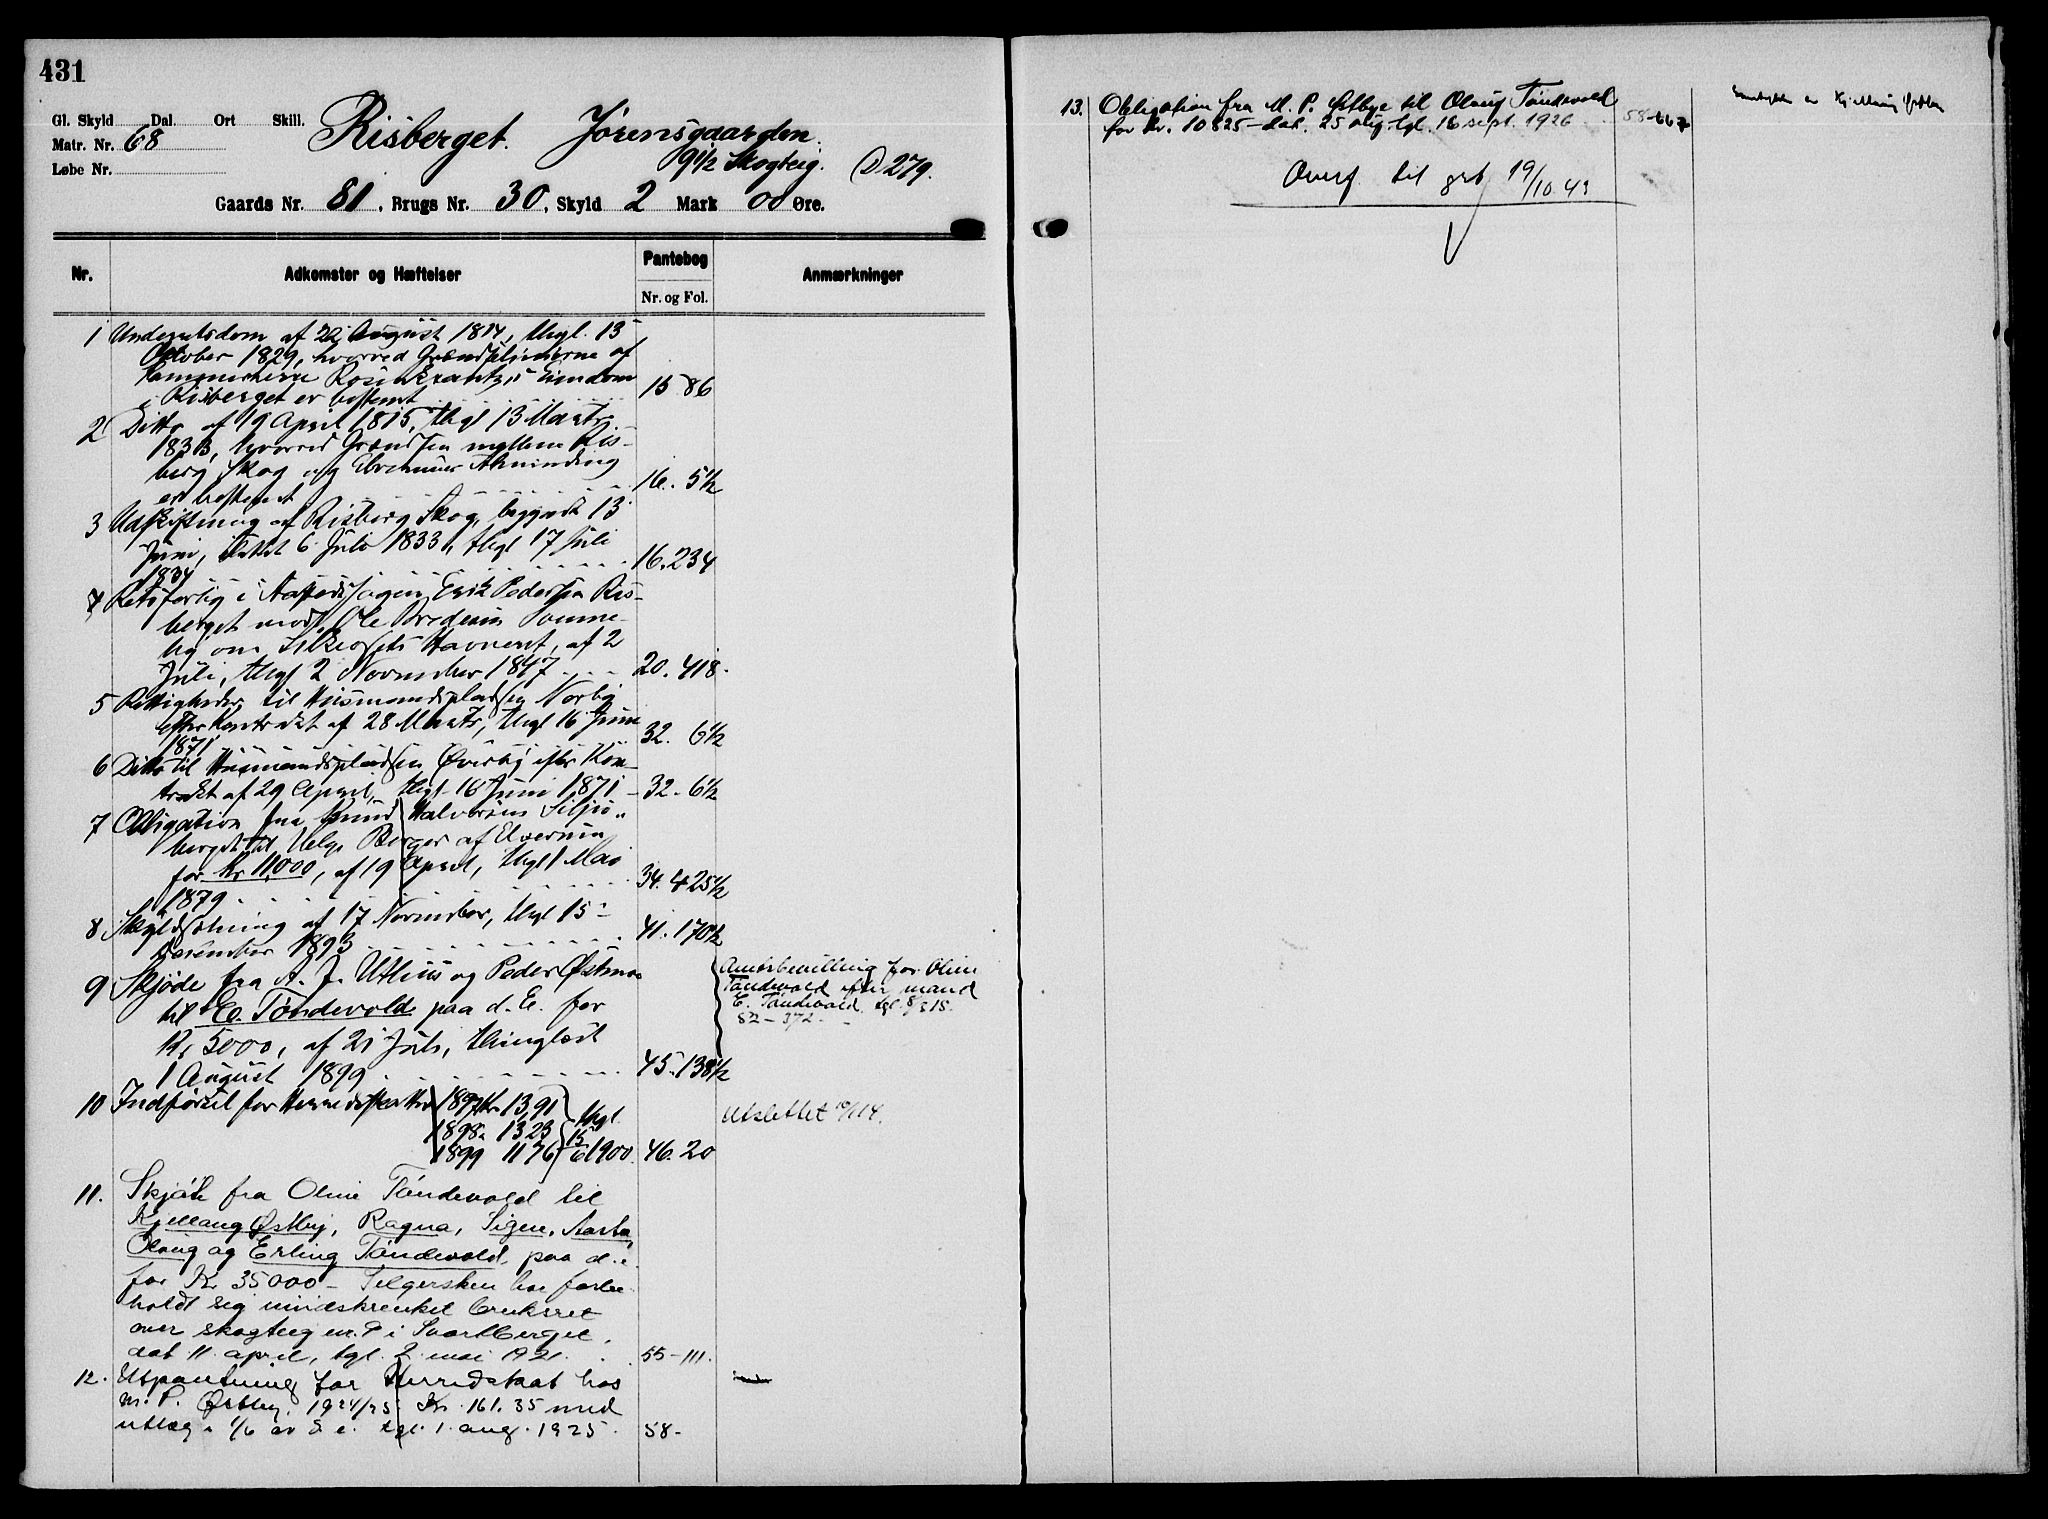 431
Gl. Skyld Dal. Ort Skill.
Matr. Nr. 68
Løbe Nr.
Risberget. Jørensgaarden.
9 1/2 Skogteig. D 279.
Gaards Nr. 81, Brugs Nr. 30, Skyld 2 Mark 00 Øre.
Nr. Adkomster og Hæftelser Pantebog Anmærkninger
Nr. og Fol.
1 Underretsdom af 22 August 1814, thgl. 15
Oktober 1829, hvorved Grændselinierne af
Kammerherre Rosenkrantz's Eiendom
i Risberget er bestemt 15 86
2 Ditto af 19 April 1815, thgl 13 Marts
1833, hvorved Grændsen mellem Ris-
berg Skog og Elverums Alminding
er bestemt 16. 5 1/2
3 Udskiftning af Risberg Skog, begyndt 13
Juni, sluttet 6 Juli 1833, thgl 17 Juli
1834 16. 234
4 Retsforlig i Sagen Erik Pedersen Ris-
berget mod Ole
om Havneret, af 2
Juli, thgl 2 November 1847 20. 418.
5 Rettigheder til Husmandspladsen Norby
efter Kontrakt af 28 Marts, thgl 16 Juni
1871 32. 6 1/2
6 Ditto til Husmandspladsen Øverby efter Kon-
trakt af 29 April, thgl 16 Juni 1871 - 32. 6 1/2
7 Obligation fra Halvorsen
berget til Helge Berger af Elverum
for Kr 11,000, af 19 April, thgl 1 Mai
1879 34. 425 1/2
8 Skyldsætning af 17 November, thgl 15
December 1893 41. 170 1/2
9 Skjøde fra A. J. Uthus og Peder Østmo
til E. Tøndevold paa d. E. for
Kr 5000, af 21 Juli, thinglæst
1 August 1899 45. 138 1/2
Amtsbevilling for Oline
Tøndevold efter mand
E. Tøndevold, tgl. 8/5 15.
52 - 372.
10 Indførsel for Herredsskatter 1897 Kr 13,91
1898 " 13,23
1899 1176 thgl. 15/6 1900. 46. 20
Utslettet 10/1 14.
11. Skjøte fra Oline Tøndevold til
Kjellaug Østby, Ragna, Signe, Aasta,
Olaug og Erling Tøndevold, paa d. e.
for Kr 35000 - Selgersken har forbe-
holdt sig uindskrenket bruksret
over skogteig nr. 9 i Svartberget.
dat 11. april, tgl. 2. mai 1921. 55 - 111.
12. Utpantning for Herredskat hos
M. P. Østby, 1924/25 Kr. 161.35 med
utlæg i 1/6 av d. e. tgl. 1. aug. 1925. 58 -
13. Obligation fra M. P. Østbye til Olaug Tøndevold
for kr. 10825 - dat. 25 aug tgl. 16 sept. 1926 58 - 667
Samtykke av Kjellaug Østby
Overf. til grb 19/10.43